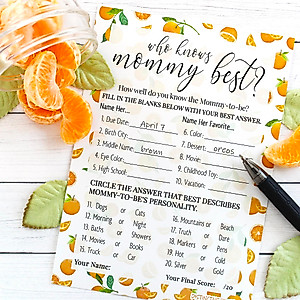 who knows
mommy best?
How well do you know the Mommy-to-be?
FILL IN THE BLANKS BELOW WITH YOUR BEST ANSWER.
Name Her:
1. Due Date: April 7
2. Birth City:
3. Middle Name: brown
4. Eye Color:
5. High School:
Name Her Favorite...
6. Color:
7. Dessert: oreos
8. Movie:
9. Childhood Toy:
10. Vacation:
CIRCLE THE ANSWER THAT BEST DESCRIBES
MOMMY-TO-BE'S PERSONALITY.
11. Dogs or Cats
12. Morning or Night
13. Baths or Showers
14. Movies or Books
15. Truck or Car
16. Mountains or Beach
17. Truth or Dare
18. Markers or Pens
19. Hot or Cold
20. Silver or Gold!
Your Name:
Your Final Score: /20